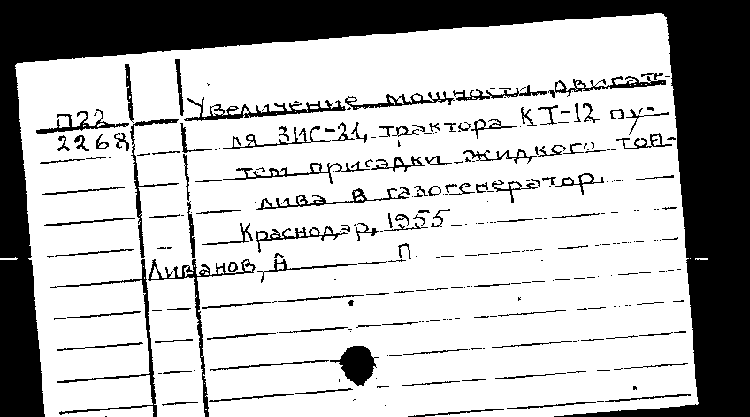 П22
2268
Увеличение мощности двигате-
ля ЗИС-21, трактора КТ-12 пу-
тем присадки жидкого топ-
лива в газогенератор.
Краснодар, 1955
Ливанов, А П